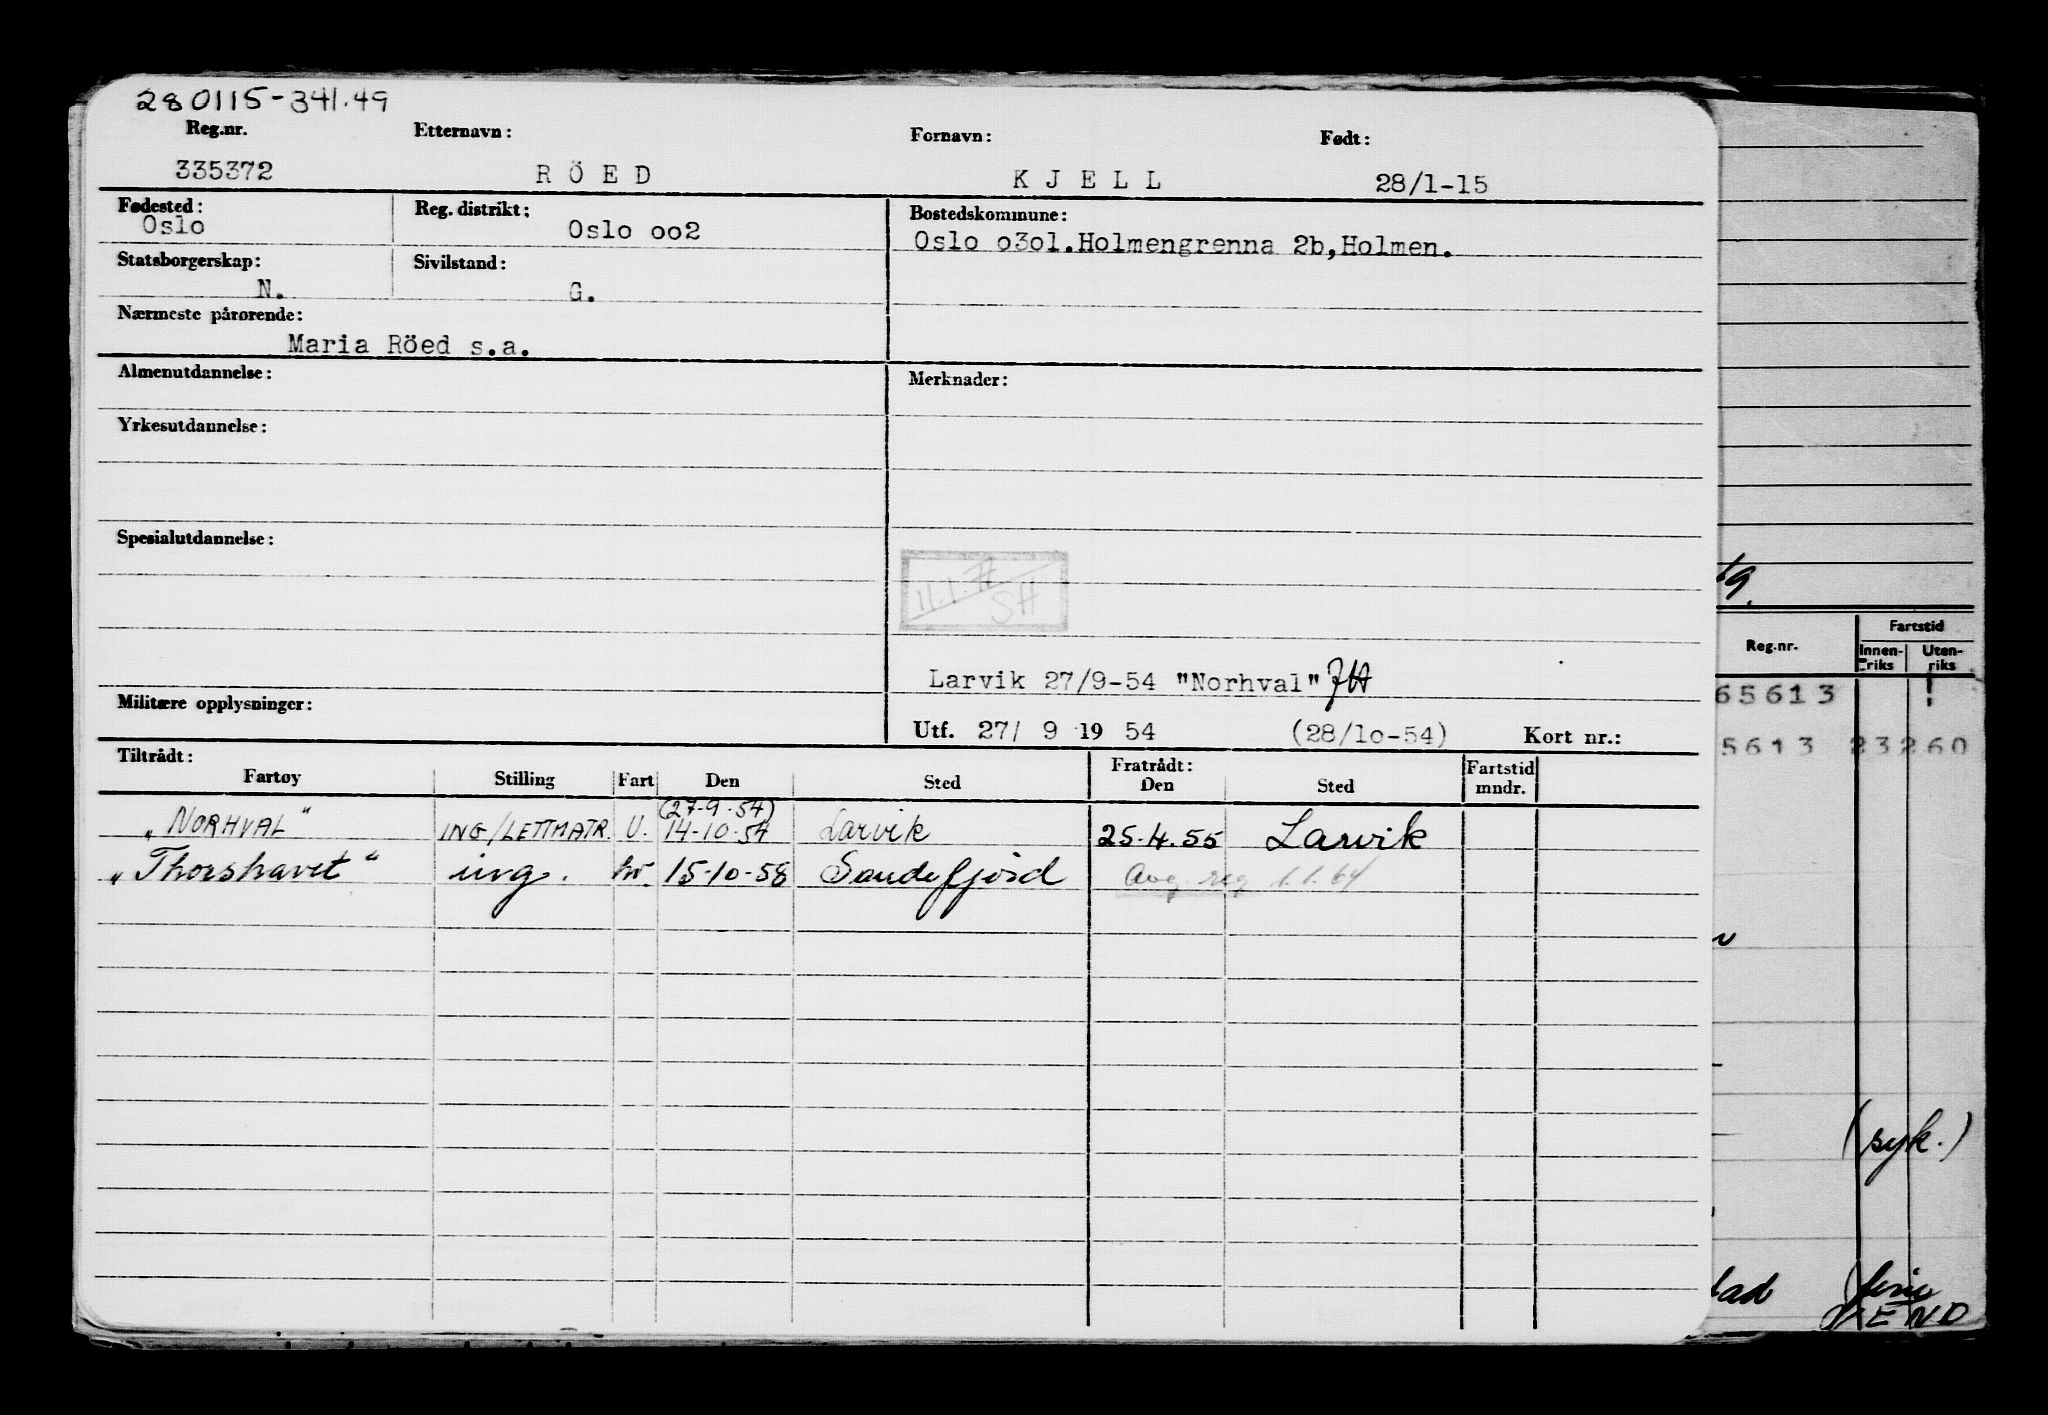 280115-341.49
Reg.nr. Etternavn: Fornavn: Født:
335372 RÖED KJELL 28/1-15
Fødested: Reg. distrikt: Bostedskommune:
Oslo Oslo oo2 Oslo o3o1.Holmengrenna 2b,Holmen.
Statsborgerskap: Sivilstand:
N. G.
Nærmeste pårørende:
Maria Röed s.a.
Almenutdannelse: Merknader:
Yrkesutdannelse:
Spesialutdannelse:
SH
Larvik 27/9-54 "Norhval"
Militære opplysninger:
Utf. 27/ 9 19 54 (28/1o-54) Kort nr.:
Tiltrådt: Fratrådt:
Fartøy Stilling Fart Den Sted Den Sted Fartstid mndr.
(27-9-54)
„NORHVAL" ING/LETTMATR. U. 14-10-54 Larvik 25.4.55 Larvik
„Thorshavet" ing. hv. 15-10-58 Sandefjord Avg. reg 1.1.64
69.
Reg.nr. Fartstid
Innen-riks Uten-riks
65613 !
5613 23260
(syk.)
END